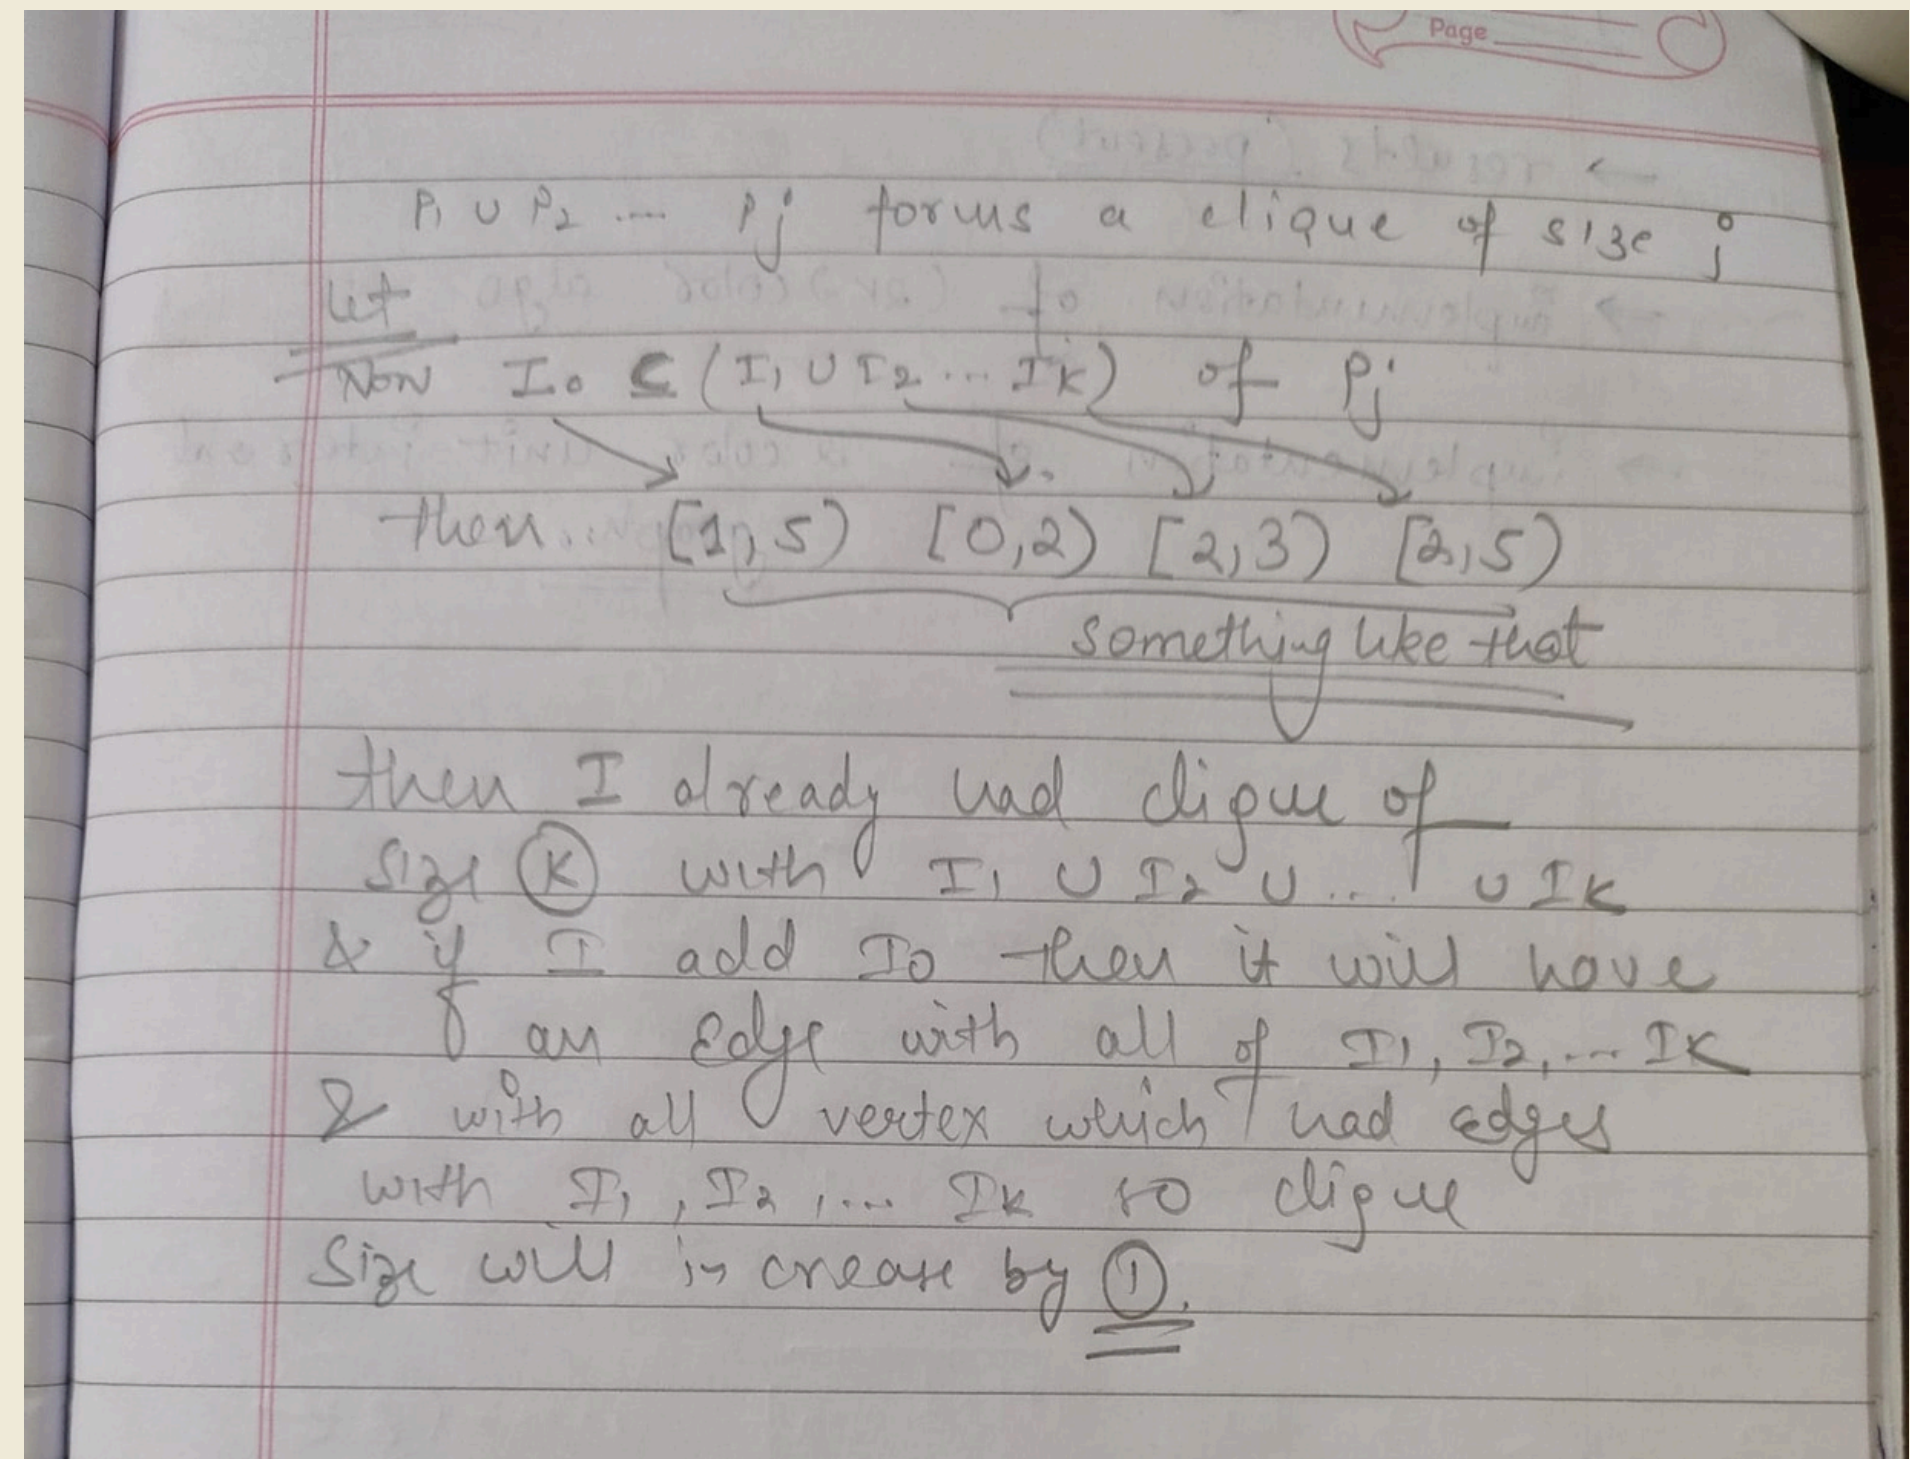 Page
P1 ∪ P2 .... Pj forms a clique of size j
Let
Now I0 ⊆ (I1 ∪ I2 ... Ik) of Pj
then.. [1,5) [0,2) [2,3) [2,5)
something like that
then I already had clique of
size K with I1 ∪ I2 ∪ ... ∪ Ik
& if I add I0 then it will have
an edge with all of I1, I2, ... Ik
& with all vertex which had edges
with I1, I2, ... Ik so clique
size will increase by 1.